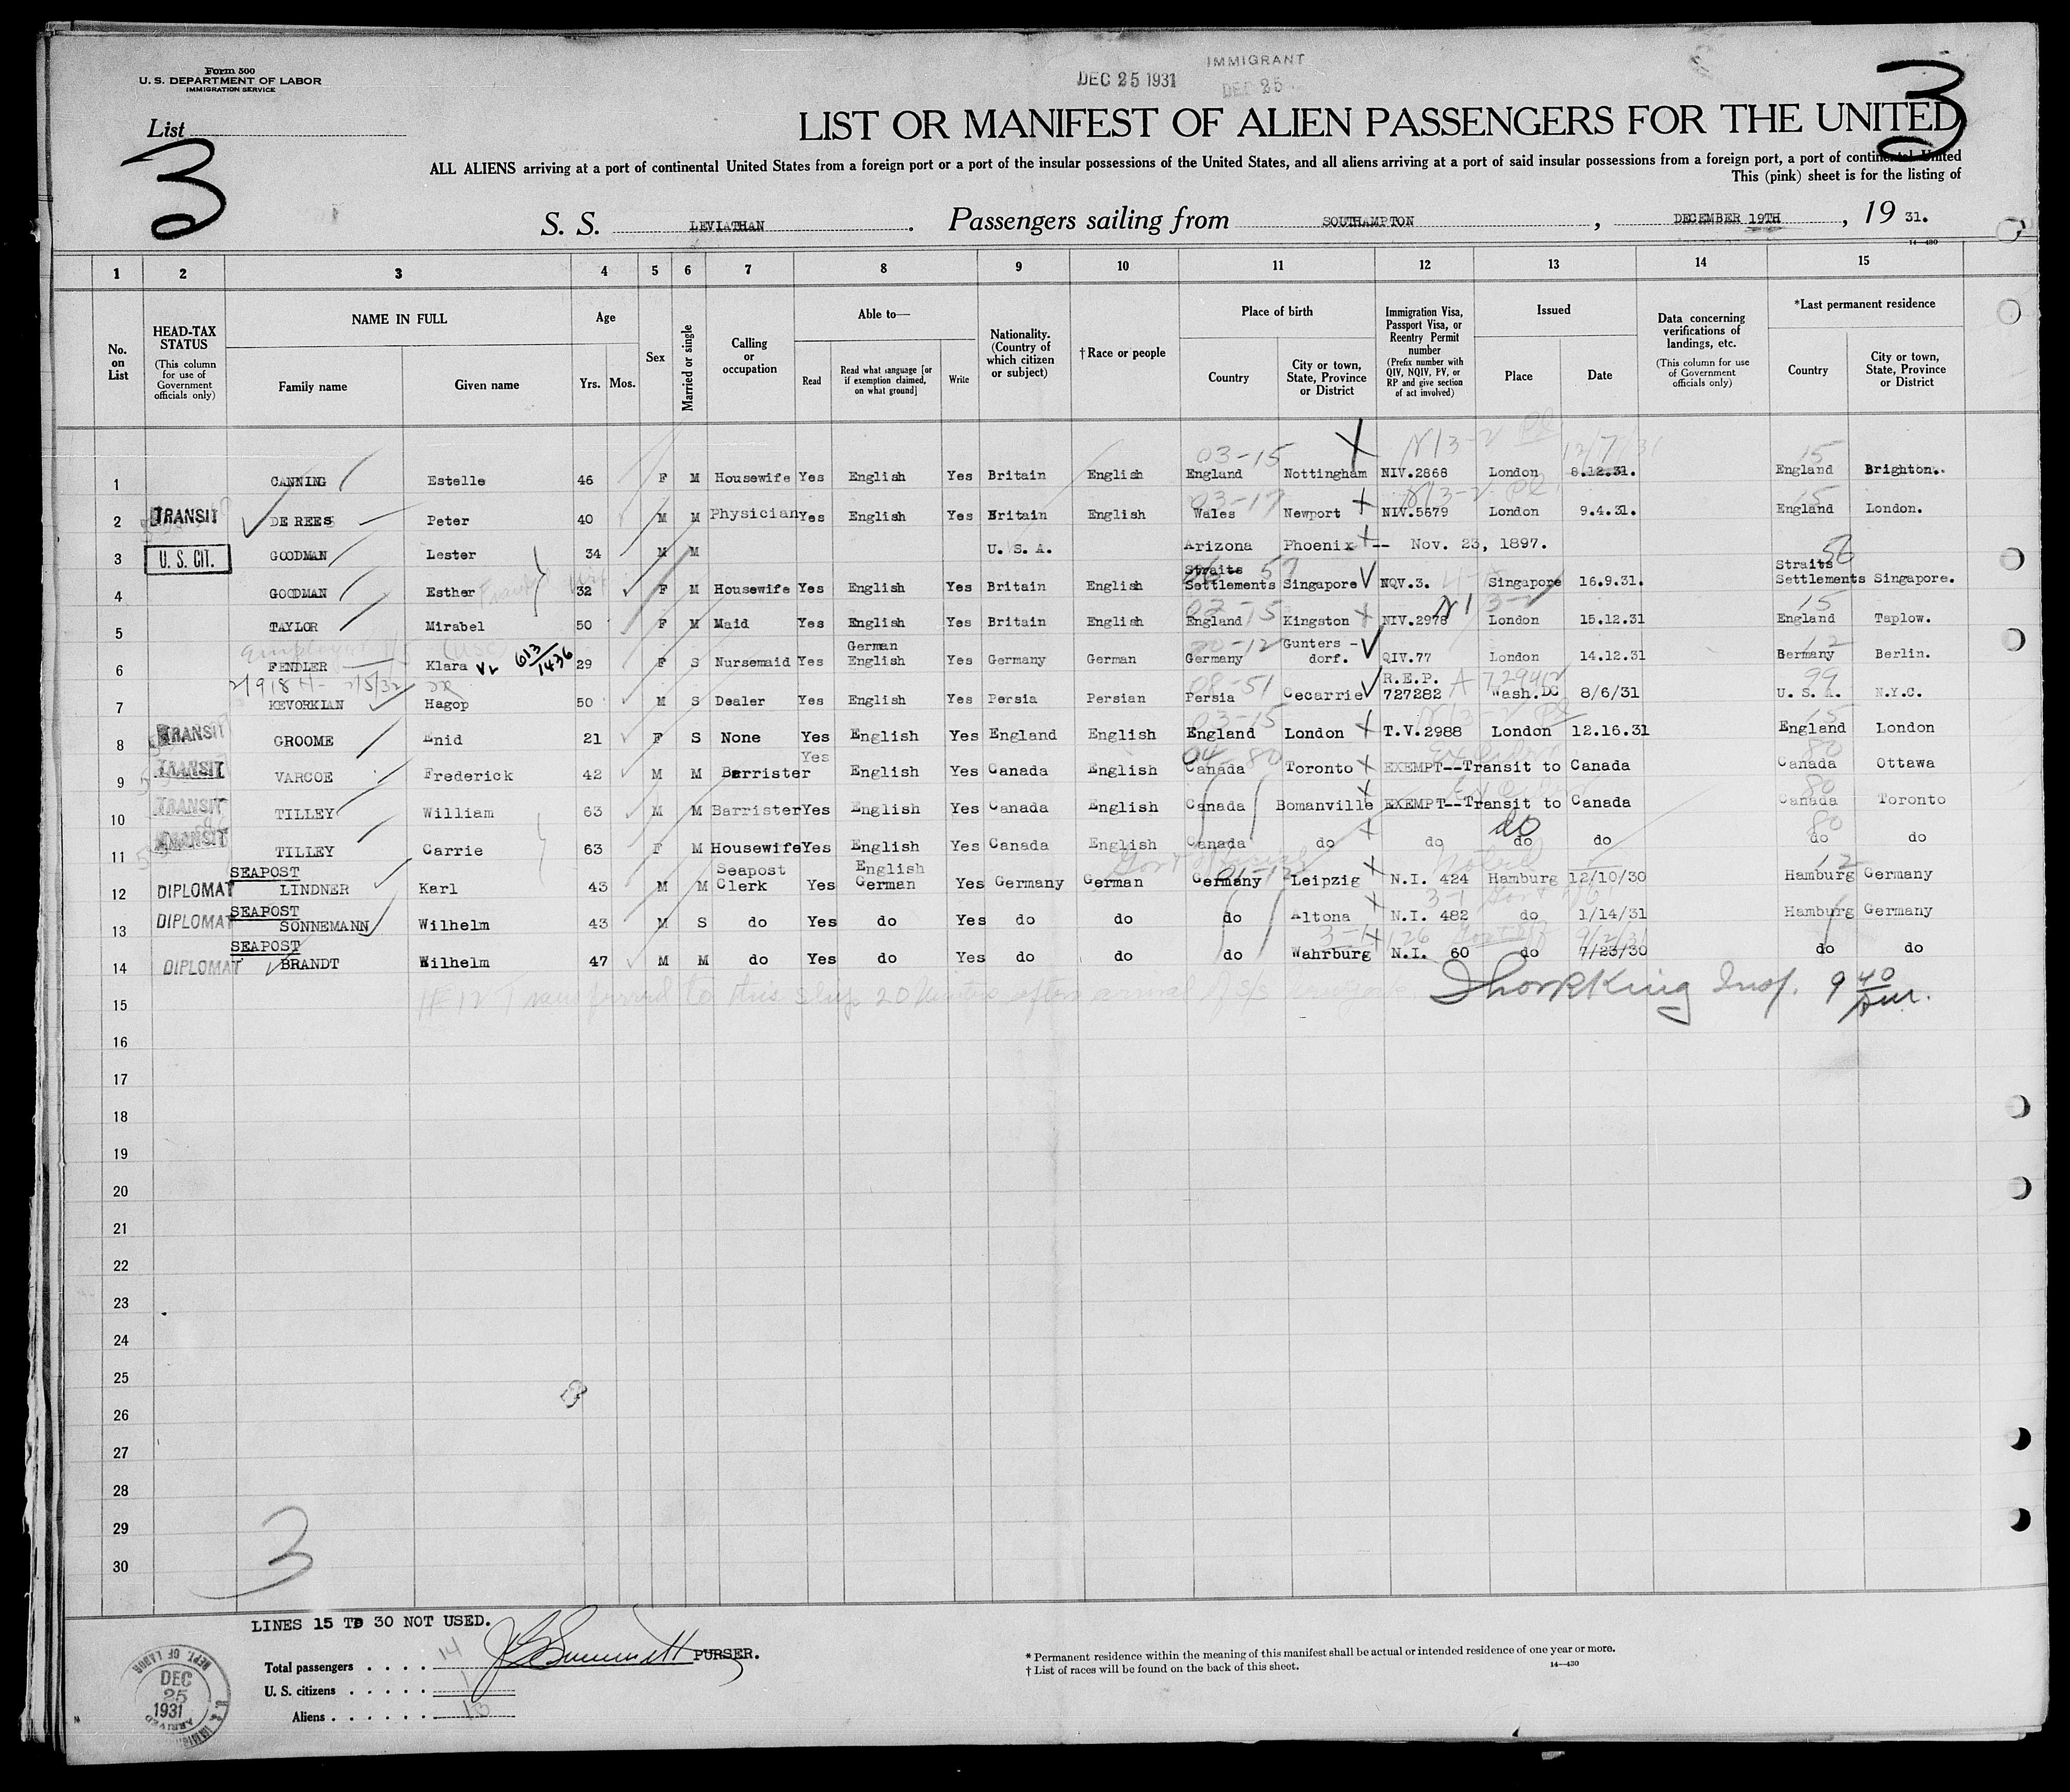 Form 500
U. S. DEPARTMENT OF LABOR
IMMIGRATION SERVICE
DEC 25 1931
IMMIGRANT
DEC 25
List
3
3
LIST OR MANIFEST OF ALIEN PASSENGERS FOR THE UNITED
ALL ALIENS arriving at a port of continental United States from a foreign port or a port of the insular possessions of the United States, and all aliens arriving at a port of said insular possessions from a foreign port, a port of continental United
This (pink) sheet is for the listing of
S. S. LEVIATHAN. Passengers sailing from SOUTHAMPTON, DECEMBER 19TH, 19 31.
14—430
1 2 3 4 5 6 7 8 9 10 11 12 13 14 15
No. on List
HEAD-TAX STATUS (This column for use of Government officials only)
NAME IN FULL
Family name
Given name
Age
Yrs. Mos.
Sex
Married or single
Calling or occupation
Able to—
Read
Read what language [or if exemption claimed, on what ground]
Write
Nationality. (Country of which citizen or subject)
†Race or people
Place of birth
Country
City or town, State, Province or District
Immigration Visa, Passport Visa, or Reentry Permit number (Prefix number with QIV, NQIV, PV, or RP and give section of act involved)
Issued
Place
Date
Data concerning verifications of landings, etc. (This column for use of Government officials only)
*Last permanent residence
Country
City or town, State, Province or District
03-15 N13-2 Pl 12/7/31 15
1 CANNING Estelle 46 F M Housewife Yes English Yes Britain English England Nottingham NIV.2868 London 8.12.31. England Brighton.
03-17 N13-2 Pl 15
2 TRANSIT DE REES Peter 40 M M Physician Yes English Yes Britain English Wales Newport NIV.5679 London 9.4.31. England London.
3 U. S. CIT. GOODMAN Lester 34 M M U. S. A. Arizona Phoenix -- Nov. 23, 1897.
56
4 GOODMAN Esther 32 F M Housewife Yes English Yes Britain English Straits Settlements Singapore NQV.3. Singapore 16.9.31. Straits Settlements Singapore.
03-15 N13-2 15
5 TAYLOR Mirabel 50 F M Maid Yes English Yes Britain English England Kingston NIV.2978 London 15.12.31 England Taplow.
20-12 12
6 FENDLER Klara VL 613/1436 29 F S Nursemaid Yes German English Yes Germany German Germany Gunters-dorf. QIV.77 London 14.12.31 Germany Berlin.
2/918 H- 2/5/32 08-51 A 729412 99
7 KEVORKIAN Hagop 50 M S Dealer Yes English Yes Persia Persian Persia Cecarrie R.E.P. 727282 Wash.DC 8/6/31 U. S. A. N.Y.C.
03-15 N13-2 Pl 15
8 TRANSIT GROOME Enid 21 F S None Yes English Yes England English England London T.V.2988 London 12.16.31 England London
04-80 80
9 TRANSIT VARCOE Frederick 42 M M Barrister Yes English Yes Canada English Canada Toronto EXEMPT--Transit to Canada Canada Ottawa
80
10 TRANSIT TILLEY William 63 M M Barrister Yes English Yes Canada English Canada Bomanville EXEMPT--Transit to Canada Canada Toronto
do 80
11 TRANSIT TILLEY Carrie 63 F M Housewife Yes English Yes Canada English Canada do do do do do do
Gov't official 01-12 12
12 DIPLOMAT SEAPOST LINDNER Karl 43 M M Seapost Clerk Yes English German Yes Germany German Germany Leipzig N.I. 424 Hamburg 12/10/30 Hamburg Germany
13 DIPLOMAT SEAPOST SONNEMANN Wilhelm 43 M S do Yes do Yes do do do Altona N.I. 482 do 1/14/31 Hamburg Germany
14 DIPLOMAT SEAPOST BRANDT Wilhelm 47 M M do Yes do Yes do do do Wahrburg N.I. 60 do 7/23/30 do do
15 #12 Transferred to this ship 20 minutes after arrival King Insp. 9 40 am.
16
17
18
19
20
21
22
23
24
25
26
27
28
29
30
3
LINES 15 TO 30 NOT USED.
Total passengers . . . . 14 PURSER.
U. S. citizens . . . . . 1
Aliens . . . . . . 13
* Permanent residence within the meaning of this manifest shall be actual or intended residence of one year or more.
† List of races will be found on the back of this sheet.
14—430
DEPT. OF LABOR
DEC 25 1931
ARRIVED